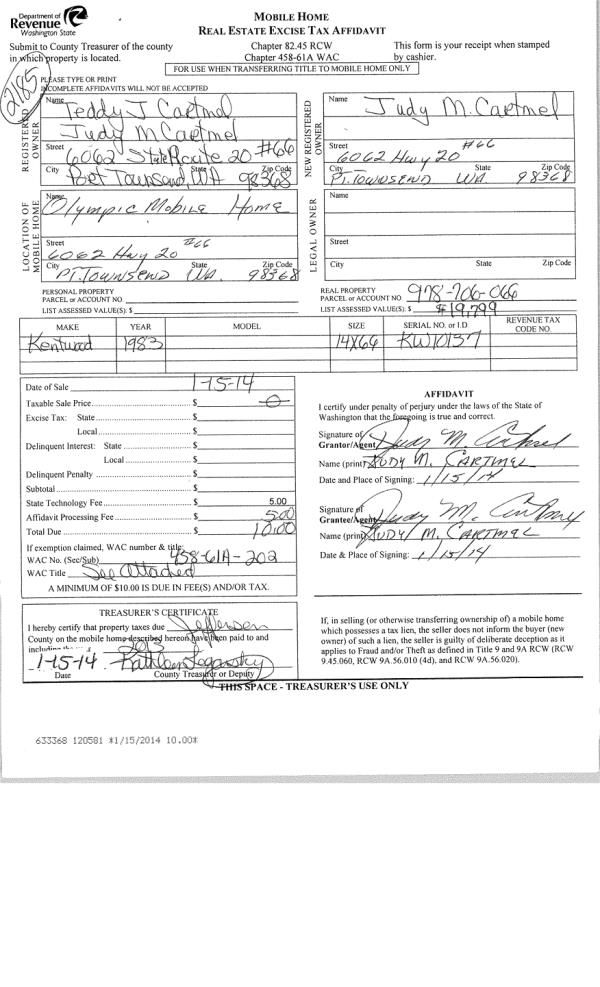 Department of
Revenue
Washington State
MOBILE HOME
REAL ESTATE EXCISE TAX AFFIDAVIT
Submit to County Treasurer of the county
in which property is located.
Chapter 82.45 RCW
Chapter 458-61A WAC
This form is your receipt when stamped
by cashier.
FOR USE WHEN TRANSFERRING TITLE TO MOBILE HOME ONLY
2185
PLEASE TYPE OR PRINT
INCOMPLETE AFFIDAVITS WILL NOT BE ACCEPTED
REGISTERED OWNER
Name Teddy J Cartmel
Judy M Cartmel
Street 6062 State Route 20 #66
City State Zip Code
Port Townsend, WA 98368
NEW REGISTERED OWNER
Name Judy M. Cartmel
Street 6062 Hwy 20 #66
City State Zip Code
PT. TOWNSEND WA 98368
LOCATION OF MOBILE HOME
Name
Olympic Mobile Home
Street #66
6062 Hwy 20
City State Zip Code
PT. TOWNSEND WA. 98368
LEGAL OWNER
Name
Street
City State Zip Code
PERSONAL PROPERTY
PARCEL or ACCOUNT NO.
LIST ASSESSED VALUE(S): $
REAL PROPERTY
PARCEL or ACCOUNT NO. 978-706-066
LIST ASSESSED VALUE(S): $ $19,799
MAKE YEAR MODEL SIZE SERIAL NO. or I.D. REVENUE TAX CODE NO.
Kentwood 1983 14X66 KW10137
Date of Sale 1-15-14
Taxable Sale Price $ 0
Excise Tax: State $
Local $
Delinquent Interest: State $
Local $
Delinquent Penalty $
Subtotal $
State Technology Fee $ 5.00
Affidavit Processing Fee $ 5.00
Total Due $ 10.00
If exemption claimed, WAC number & title:
WAC No. (Sec/Sub) 458-61A-202
WAC Title See Attached
A MINIMUM OF $10.00 IS DUE IN FEE(S) AND/OR TAX.
AFFIDAVIT
I certify under penalty of perjury under the laws of the State of
Washington that the foregoing is true and correct.
Signature of
Grantor/Agent Judy M Cartmel
Name (print) JUDY M. CARTMEL
Date and Place of Signing: 1/15/14
Signature of
Grantee/Agent Judy M. Cartmel
Name (print) JUDY M. CARTMEL
Date & Place of Signing: 1/15/14
TREASURER'S CERTIFICATE
I hereby certify that property taxes due Jefferson
County on the mobile home described hereon have been paid to and
including the year 2013
1-15-14
Date County Treasurer or Deputy
If, in selling (or otherwise transferring ownership of) a mobile home
which possesses a tax lien, the seller does not inform the buyer (new
owner) of such a lien, the seller is guilty of deliberate deception as it
applies to Fraud and/or Theft as defined in Title 9 and 9A RCW (RCW
9.45.060, RCW 9A.56.010 (4d), and RCW 9A.56.020).
THIS SPACE - TREASURER'S USE ONLY
633368 120581 *1/15/2014 10.00*